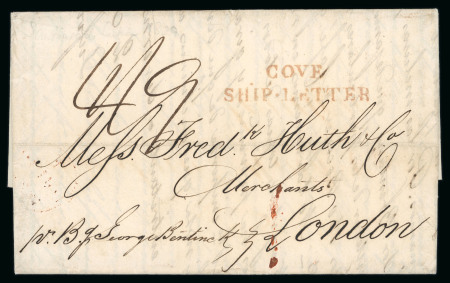 4/9
COVE
SHIP-LETTER
Messrs. Fredk. Huth & Co
Merchants
London
pr. Bg. George Bentinck